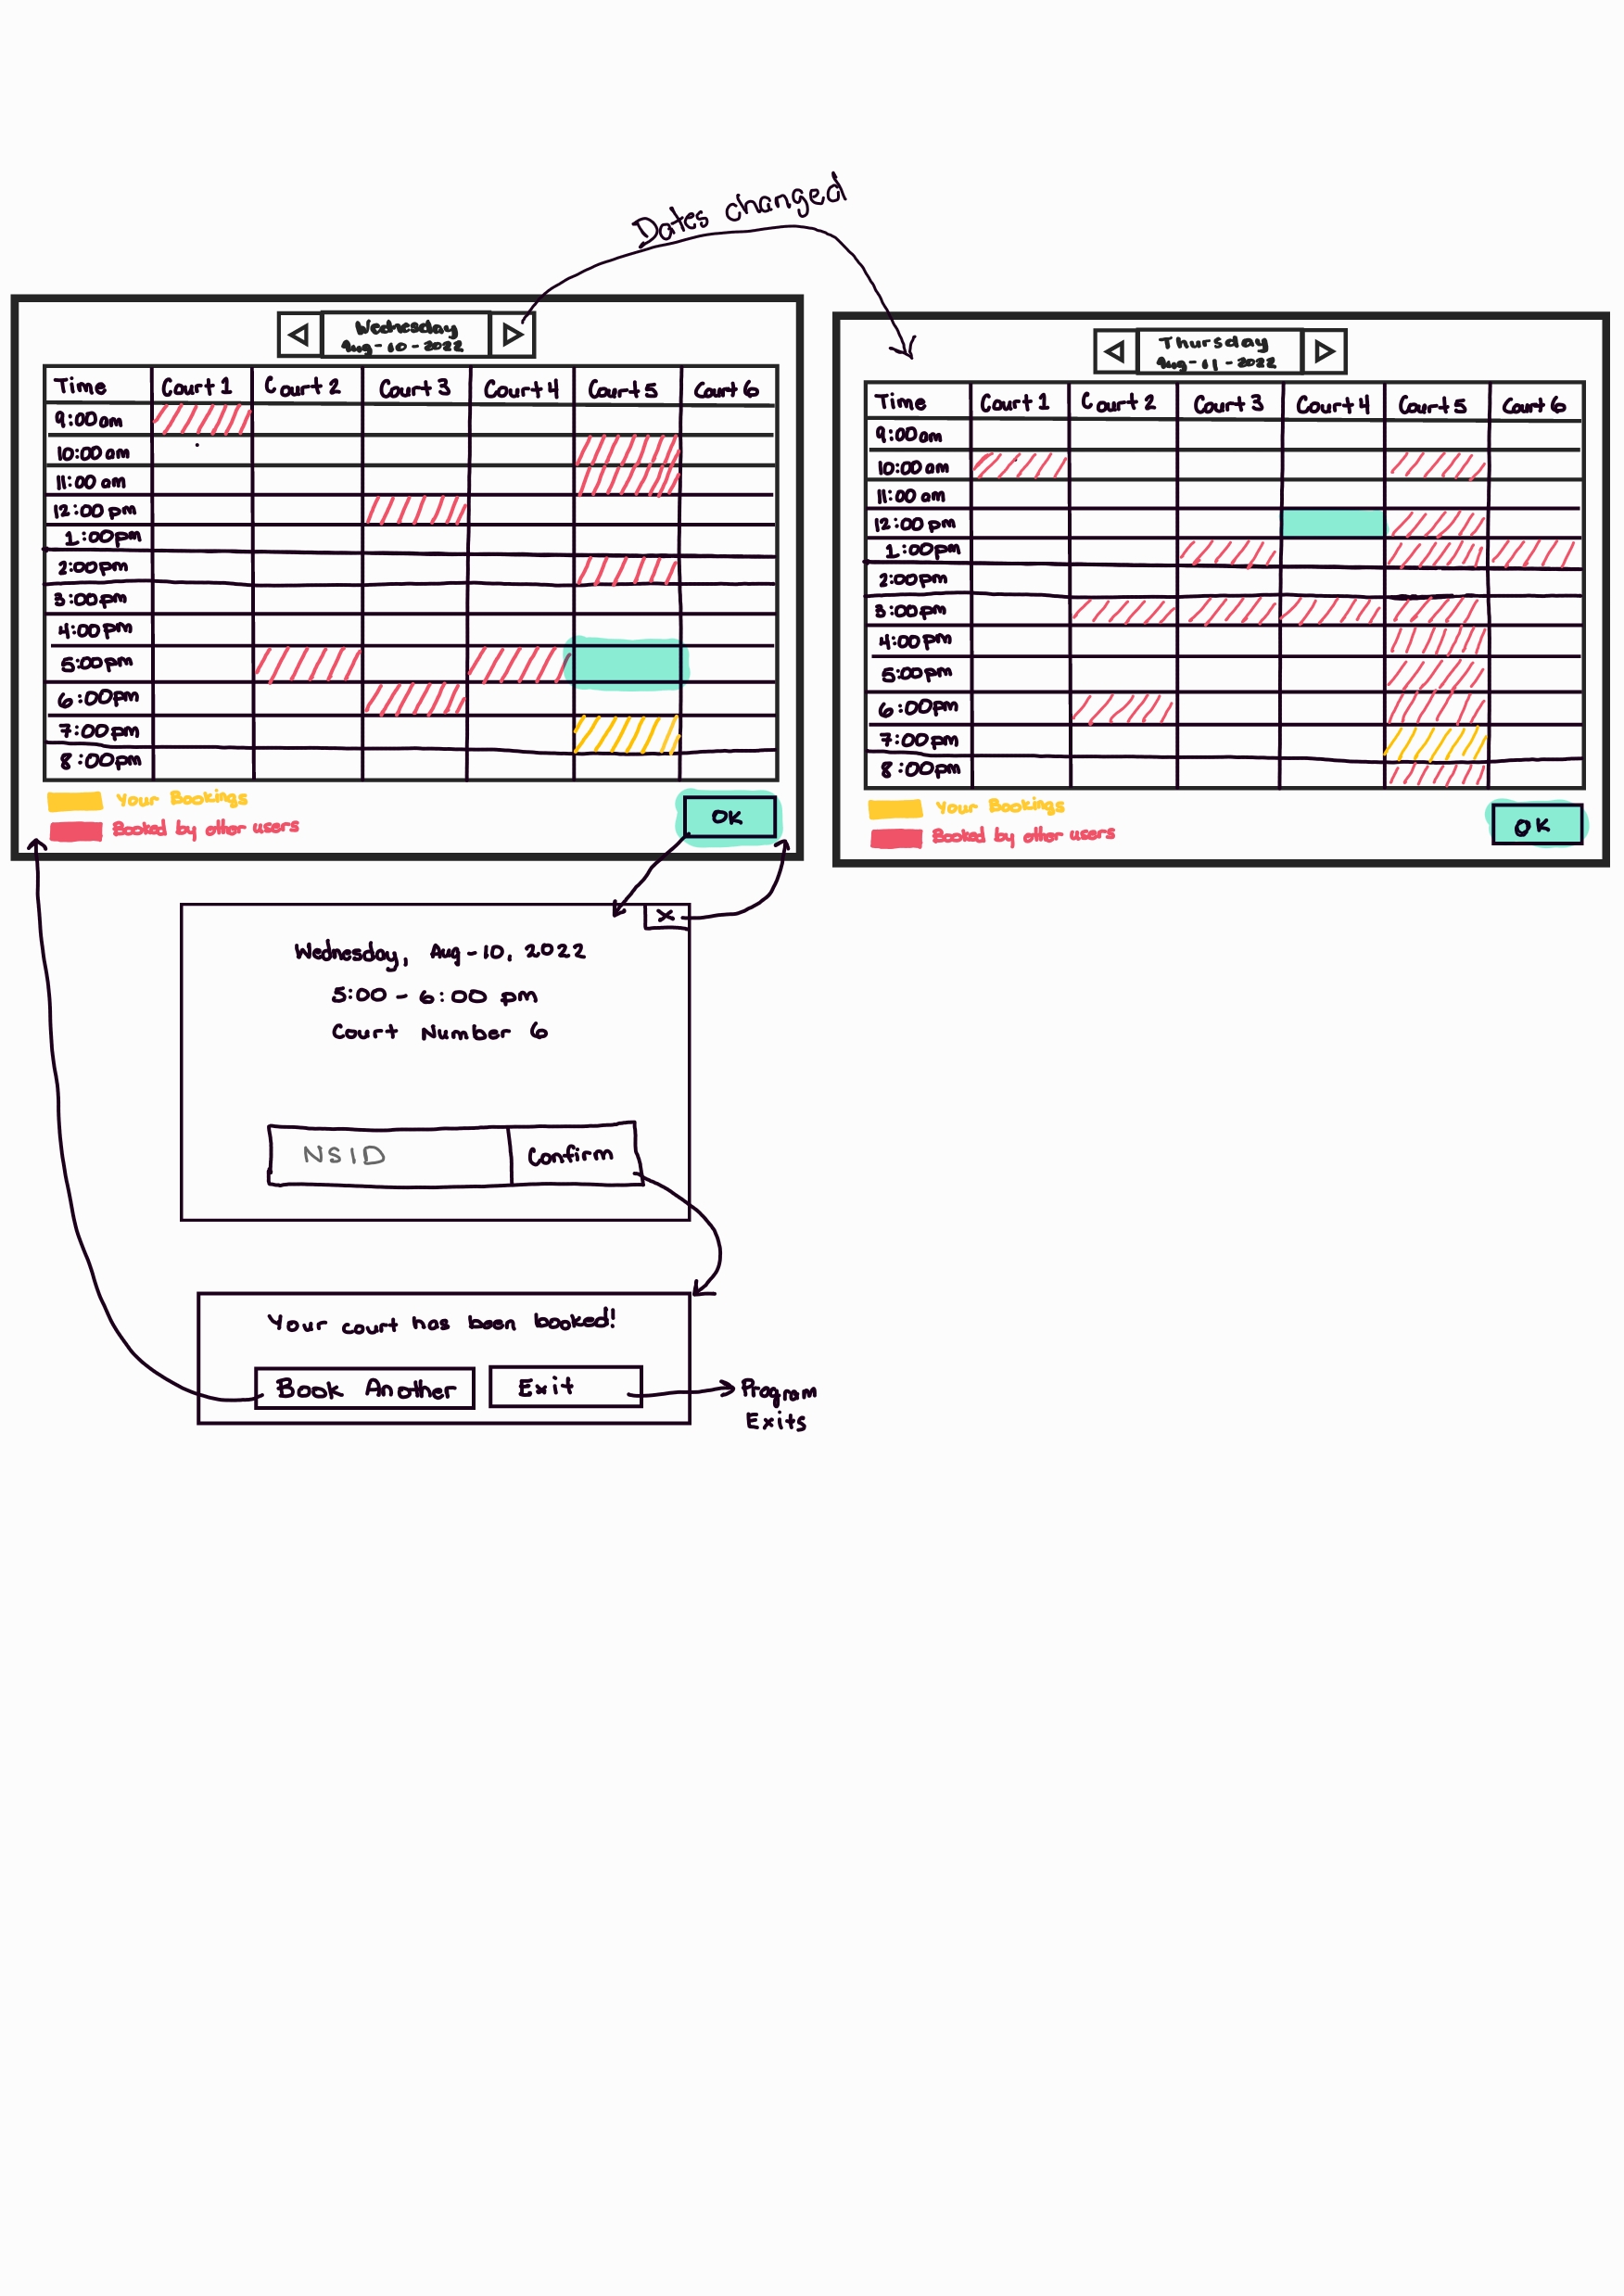 Dates changed
Wednesday
Aug-10-2022
Time Court 1 Court 2 Court 3 Court 4 Court 5 Court 6
9:00am
10:00am
11:00am
12:00pm
1:00pm
2:00pm
3:00pm
4:00pm
5:00pm
6:00pm
7:00pm
8:00pm
Your Bookings
Booked by other users
OK
Thursday
Aug-11-2022
Time Court 1 Court 2 Court 3 Court 4 Court 5 Court 6
9:00am
10:00am
11:00am
12:00pm
1:00pm
2:00pm
3:00pm
4:00pm
5:00pm
6:00pm
7:00pm
8:00pm
Your Bookings
Booked by other users
OK
X
Wednesday, Aug-10, 2022
5:00 - 6:00 pm
Court Number 6
NSID Confirm
Your court has been booked!
Book Another Exit
Program
Exits